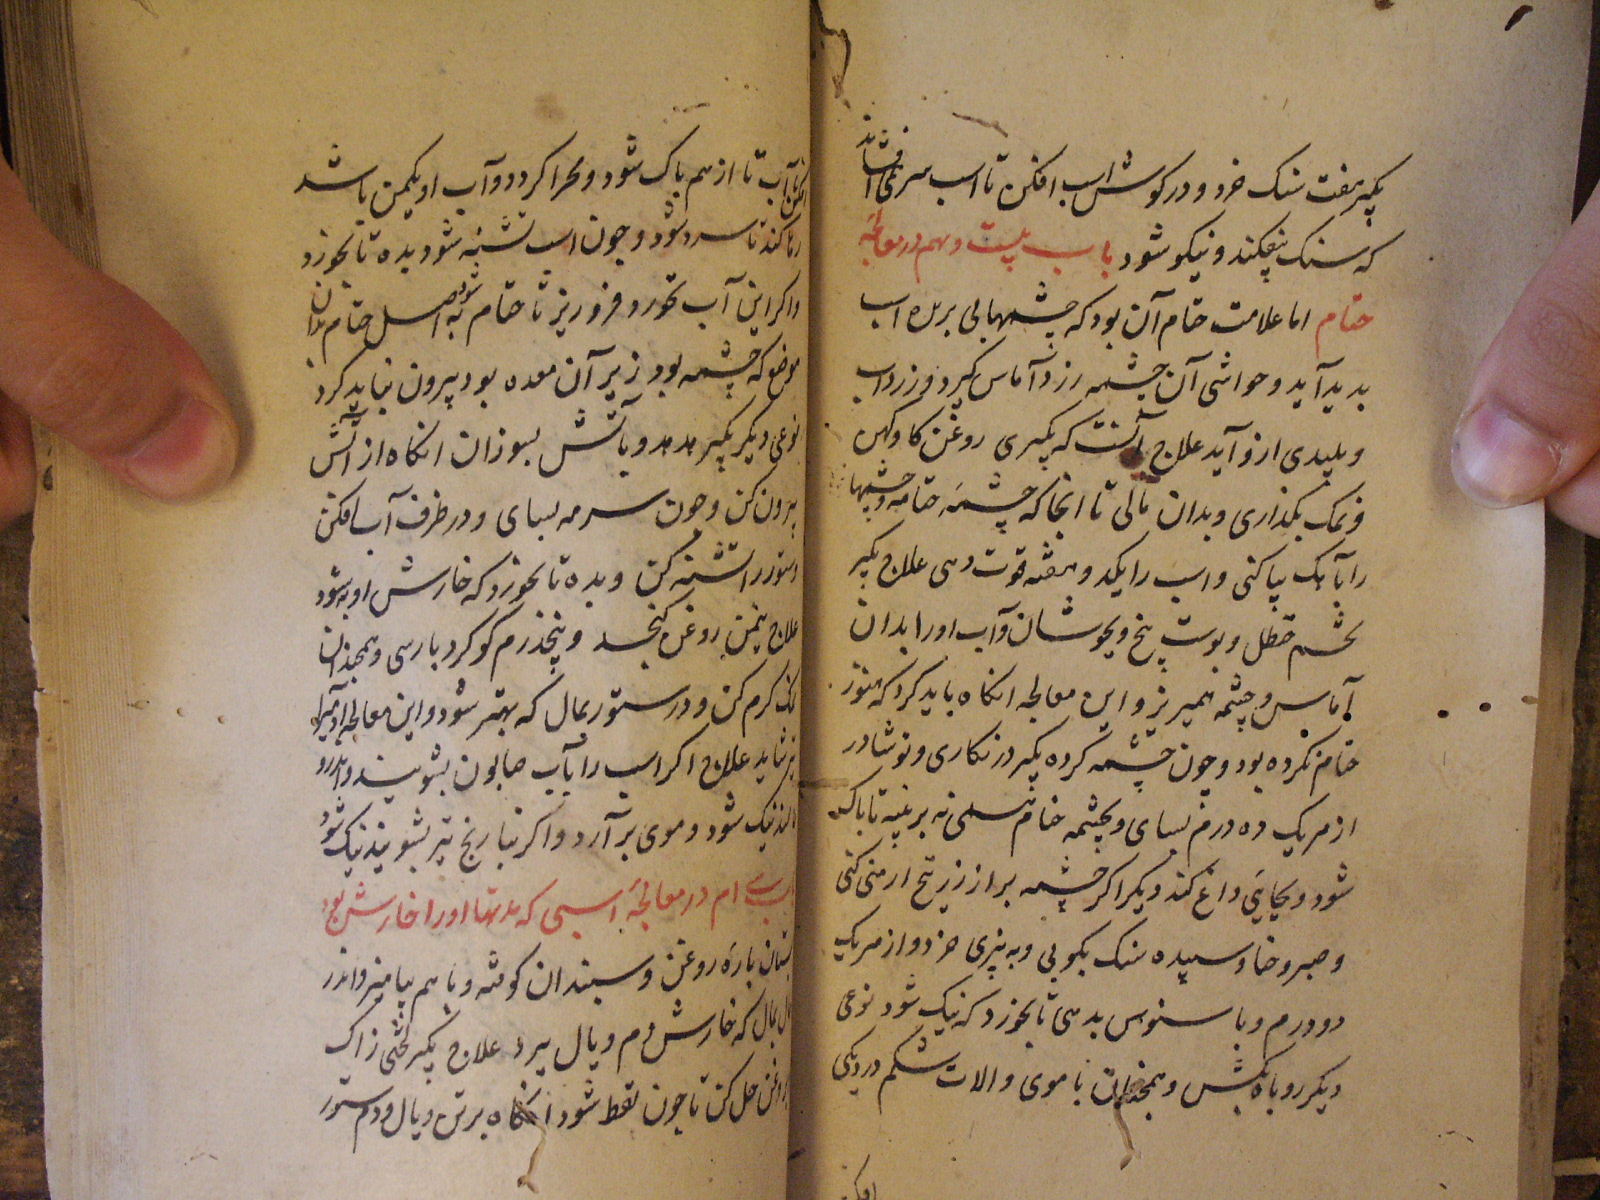 بگیر هفت سنک خرد و در کوش اسب افکن تا اسب سر می افشاند
که سنک بیفکند و نیکو شود باب بیست و نهم در معالجه
خنام اما علامت خنام آن بود که چشمهایی بر اسب
بدید آید و حواشی آن چشمه رزد و آماس کیرد و زرداب
و پلیدی ازو آید علاج آنست که بگیری روغن کاو کهن
و نمک بگذاری و بدان مالی تا انجا که چشمه خنامه و چشمها
را پاک کنی و اسب را یکد و هفته قوت دهی علاج بگیر
تخم حنظل و پوست بیخ و بجوشان و آب او را بدان
آماس و چشمه همیریز و این معالجه انکاه باید کرد که هنوز
خنام نکرده بود و چون چشمه کرده بگیر زنکاری و نوشادر
از هریک ده درم بسای و بچشمه خنام نه بر پنبه تا پاک
شود و بجای داغ کند دیکر اکر چشمه بر از زرنیخ ارمنی کنی
و صبر و حنا و سپیده سنک بکوبی و به بیزی خرد و از هریک
دو درم و با سبوس بدهی تا بخورد که نیک شود نوعی
دیکر روباه بکش و همچنان با موی و الات شکم در دیکی
افکن
آب تا از هم پاک شود و مهرا کردد و آب او یکمن باشد
رها کند تا سرد شود و چون اسب تشنه شود بده تا بخورد
و اکر این آب نخورد فرو ریز تا خنام به شود اصل خنام بدان
موضع که چشمه بود زیر آن معده بود بیرون نباید کرد
نوعی دیکر بگیر هدهد و بآتش بسوزان انکاه از آتش
بیرون کن و چون سرمه بسای و در ظرف آب افکن
و ستور را تشنه کن و بده تا بخورد که خارش او به شود
علاج نیمن روغن کنجد و پنج درم کوکرد پارسی و همچندان
نمک کرم کن و در ستور بمال که بهتر شود و این معالجه آدمی را
نیز شاید علاج اکر اسب را بآب صابون بشویند
نیک شود و موی بر آرد و اکر بنارنج نیز بشویند نیک شود
باب سی ام در معالجهٔ اسبی که او را خارش بود
بستان پاره روغن و سپندان کوفته و با هم بیامیز و اندر
یال بمال که خارش دم و یال ببرد علاج بگیر لختی زاک
بروغن حل کن تا چون نفط شود انکاه برتن و یال و دم ستور